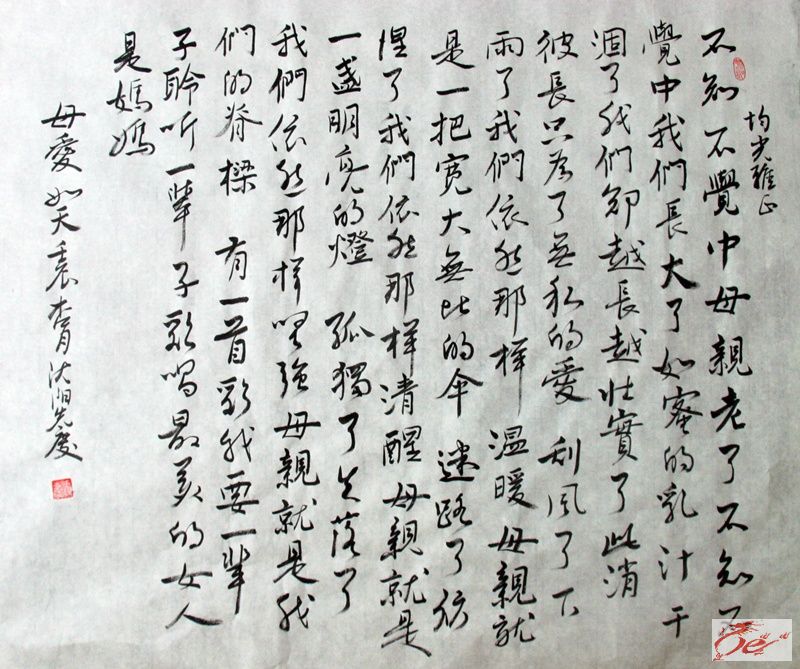 均光雅正
不知不覺中母親老了不知不
覺中我們長大了如蜜的乳汁干
涸了我們卻越長越壯實了此消
彼長只為了無私的愛 刮風了下
雨了我們依然那样溫暖母親就
是一把宽大無比的伞 迷路了彷
惶了我們依然那样清醒母親就是
一盞明亮的燈 孤獨了失落了
我們依然那样坚强母親就是我
們的脊樑 有一首歌我要一輩
子聆听一輩子歌唱最美的女人
是媽媽
母愛如天